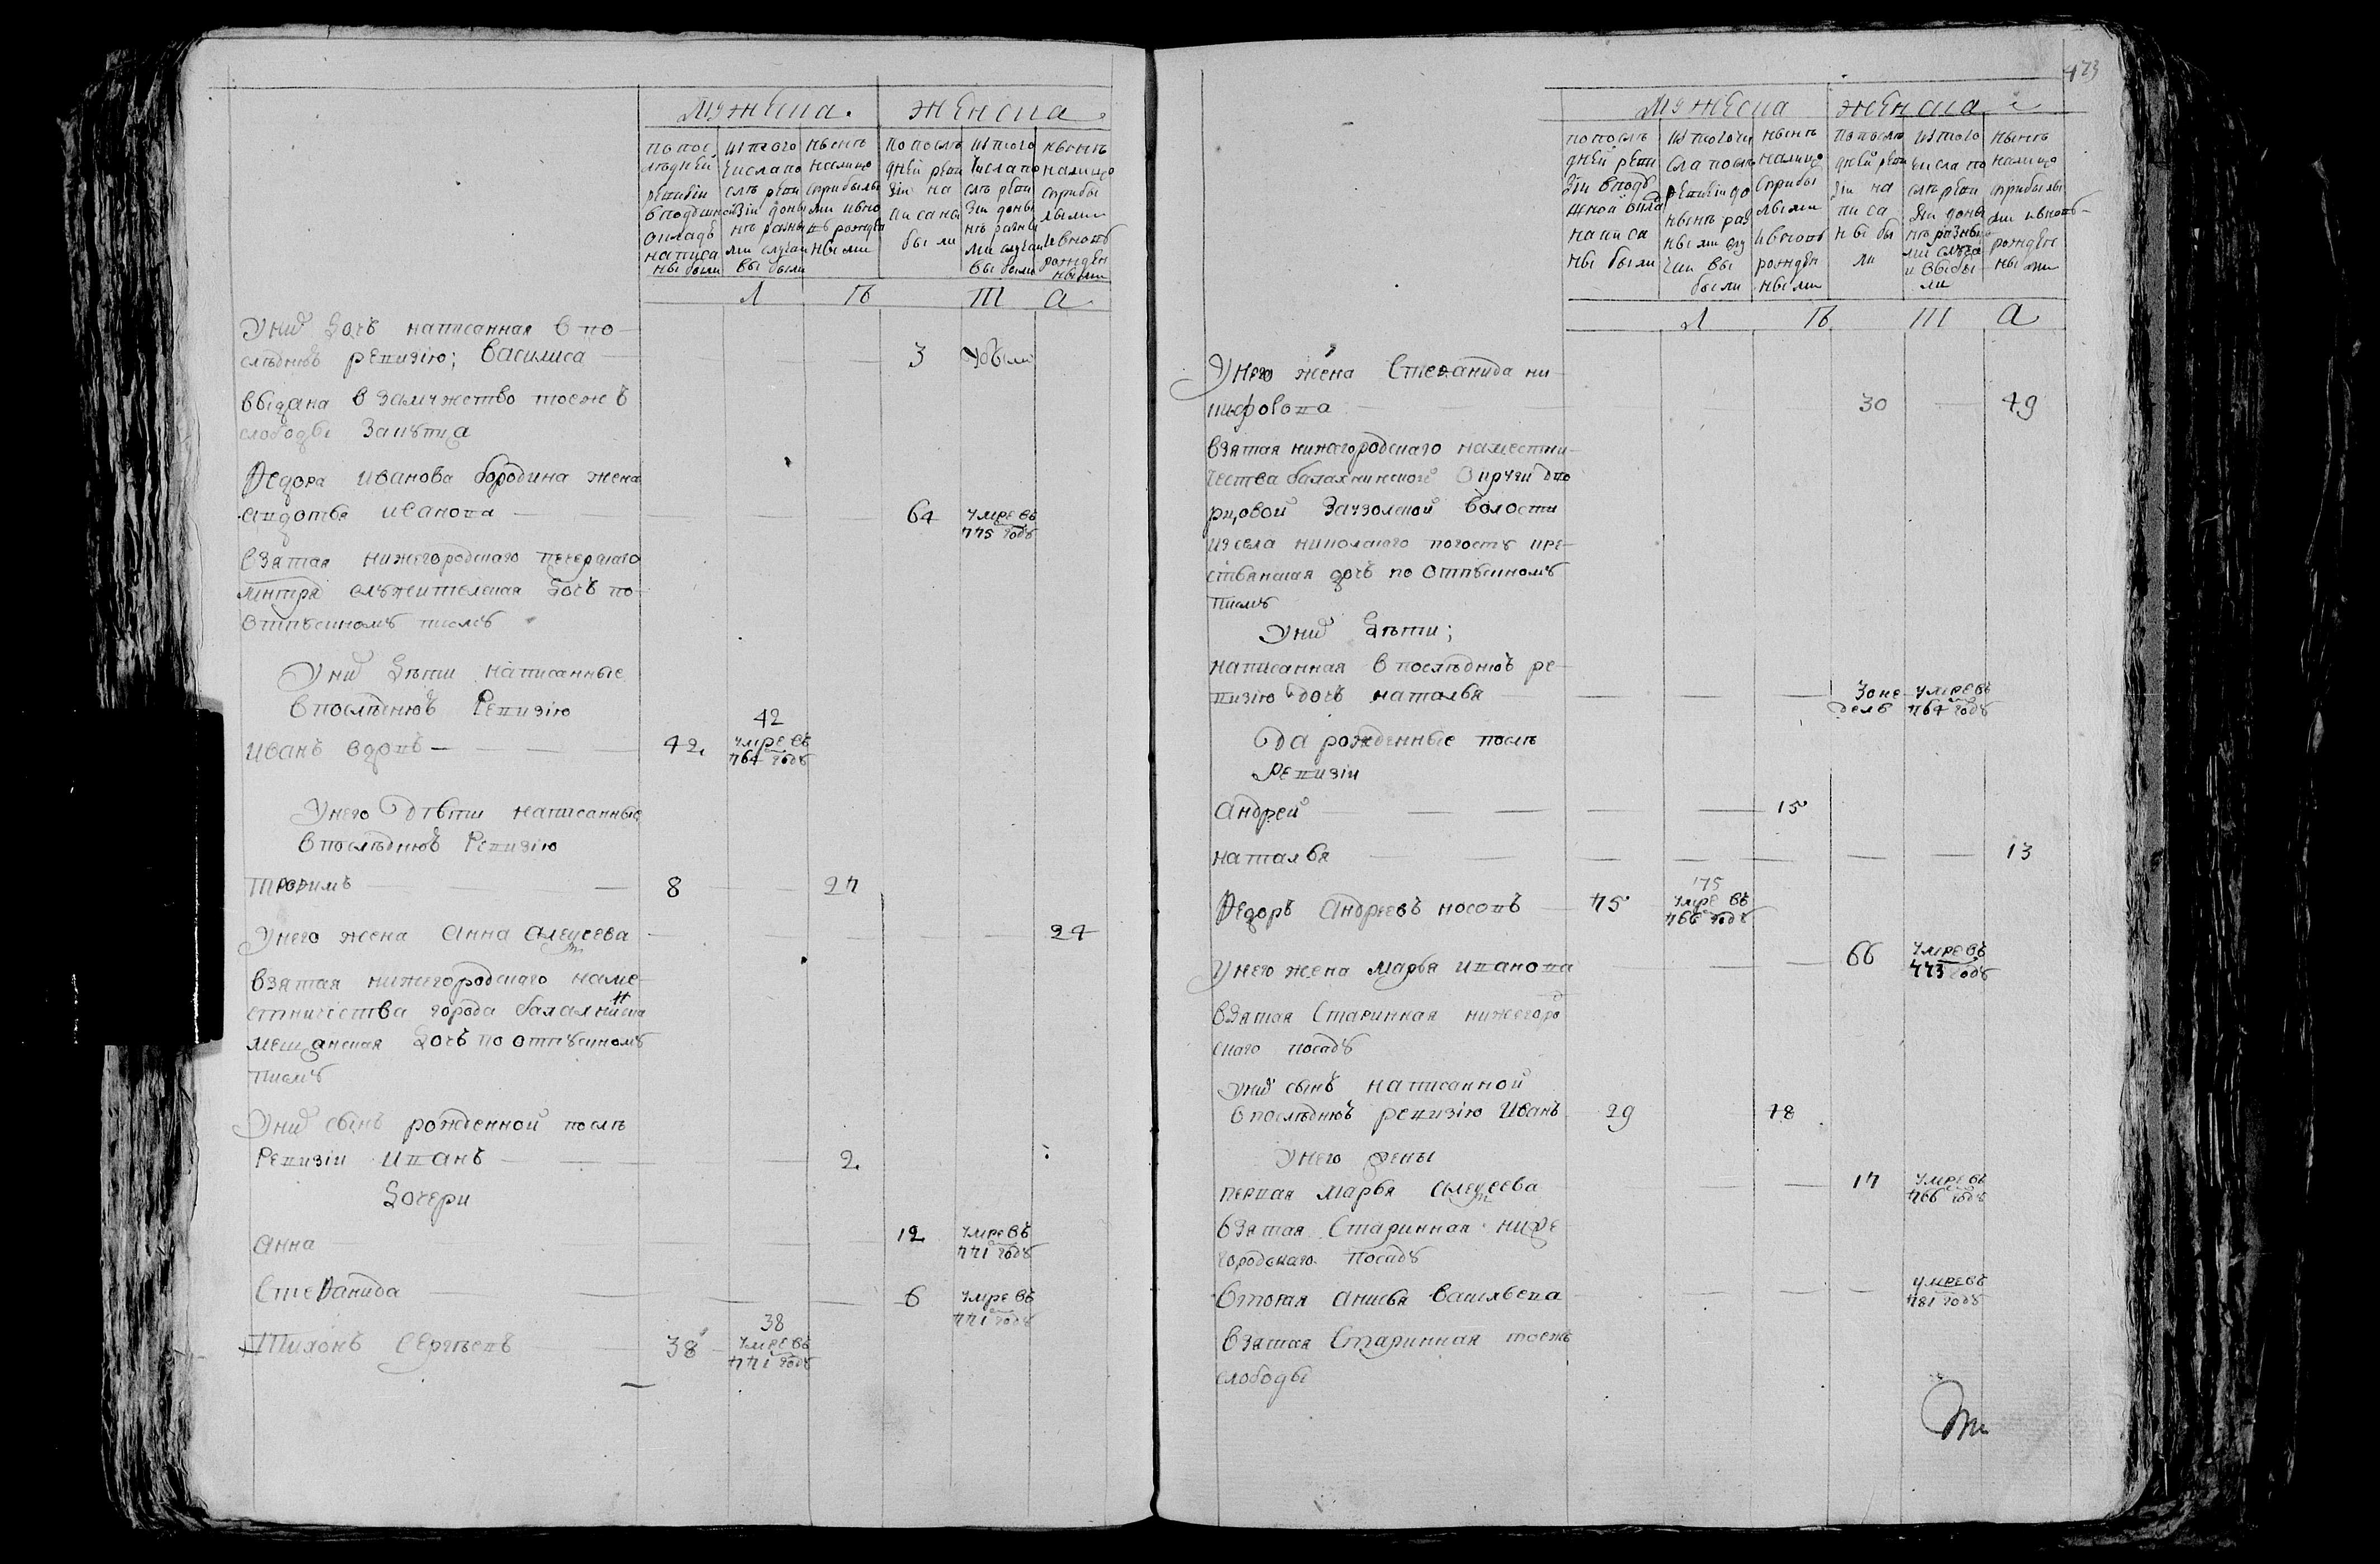 мужеска.
женска
попос
лѣдней
ревизiи
вподшно
окладъ
написа
ны были
изтого
числапо
слѣ реви
зiи доны
нѣ разны
ми случаи
вы были
нынѣ
налицо
сприбылы
ми ивно
вь рожде
ными
попослѣ
дней реви
зiи на
писаны
бы ли
изтого
числапо
слѣ реви
зiи доны
нѣ разны
ми случаи
вы были
нынѣ
налицо
сприбы
лыми
ивновь
рожден
ными
л ѣ т а
Уних дочь написанная впо
слѣднюю ревизiю; василиса 3
выдана взамужство тоежъ
слободы
Федора иванова бородина жена
авдотья иванова 64 умре въ
775 году
взятая нижегородского печерского
служителская дочь по
отпускному писму
Уних дѣти написанные
впослѣднюю Ревизiю
42
иванъ вдовъ 42. умре въ
764 году
Унего дѣти написанные
впослѣднюю Ревизiю
трофимъ 8 27
Унего жена анна алексеева 24
взятая нижегородского наме
стничества города балахны
мещанская дочь по отпускному
писму
Уних сынъ рожденной послѣ
Ревизiи иванъ 2.
Дочери
анна 12 умре въ
771 году
стефанида 6 умре въ
771 году
38
Тихонъ сергѣевъ 38 умре въ
771 году
473
мужеска
женска
попослѣ
дней реви
зiи вподу
шной окла
написа
ны были
изтогочи
сла послѣ
ревизiи до
нынѣ раз
ными слу
чаи вы
были
нынѣ
налицо
сприбы
лыми
ивновь
рожден
ными
попослѣ
дней реви
зiи на
писа
ны бы
ли
изтого
числа по
слѣ реви
зiи доны
нѣ разны
ми случа
и выбы
ли
нынѣ
налицо
сприбылы
ми ивновь
рожден
ны ми
л ѣ т а
Унего жена стефанида ни
кифорова 30 49
взятая нижегородского наместни
чества балахнинской округи дво
рцовой заузолской волости
изсела николского погосту кре
стьянская дочь по отпускному
писму
Уних дѣти;
написанная впослѣднюю ре
визiю дочь наталья 3 оне умре въ
делъ 764 году
Да рожденные послѣ
Ревизiи
андрей 15
наталья 13
75
Федоръ андреевъ носовъ 75 умре въ
766 году
унего жена марья иванова 66 умре въ
773 году
взятая старинная нижегоро
ского посаду
уних сынъ написанной
впослѣднюю ревизiю иванъ 29 48
Унего жены
первая марья алексеева 17 умре въ
766 году
взятая старинная ниже
городского посаду
вторая анисья васильева умре въ
781 году
взятая старинная тоежъ
слободы